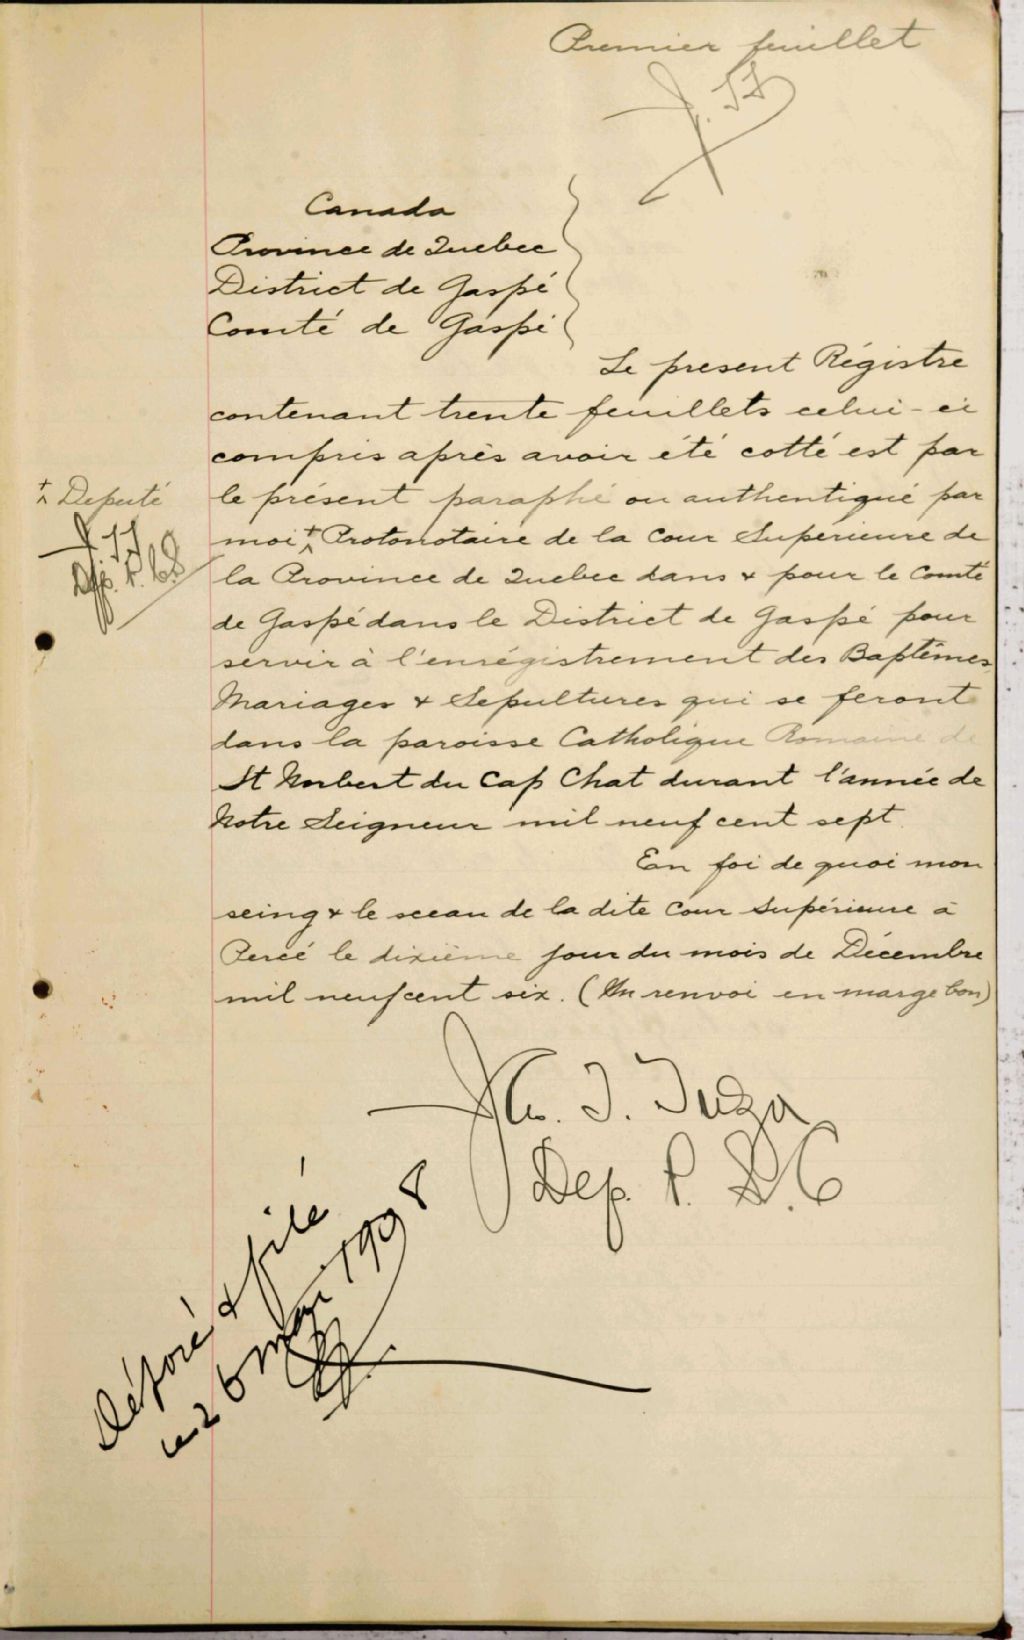 Premier feuillet
Canada
Province de Quebec
District de Gaspé
Comté de Gaspé
Le present Régistre
contenant trente feuillets celui-ci
compris après avoir été cotté est par
+ Deputé
le présent paraphé ou authentiqué par
moi + Protonotaire de la Cour Supérieure de
la Province de Quebec dans & pour le Comté
de Gaspé dans le District de Gaspé pour
servir à l'enrégistrement des Baptêmes
Mariages & Sepultures qui se feront
dans la paroisse Catholique Romaine de
St Norbert du Cap Chat durant l'année de
Notre Seigneur mil neuf cent sept.
En foi de quoi mon
seing & le sceau de la dite Cour Supérieure à
Percé le dixième jour du mois de Décembre
mil neuf cent six. (Un renvoi en marge bon)
J. Tuzo
Dep. P.
Déposé & filé
le 26 mai 1908